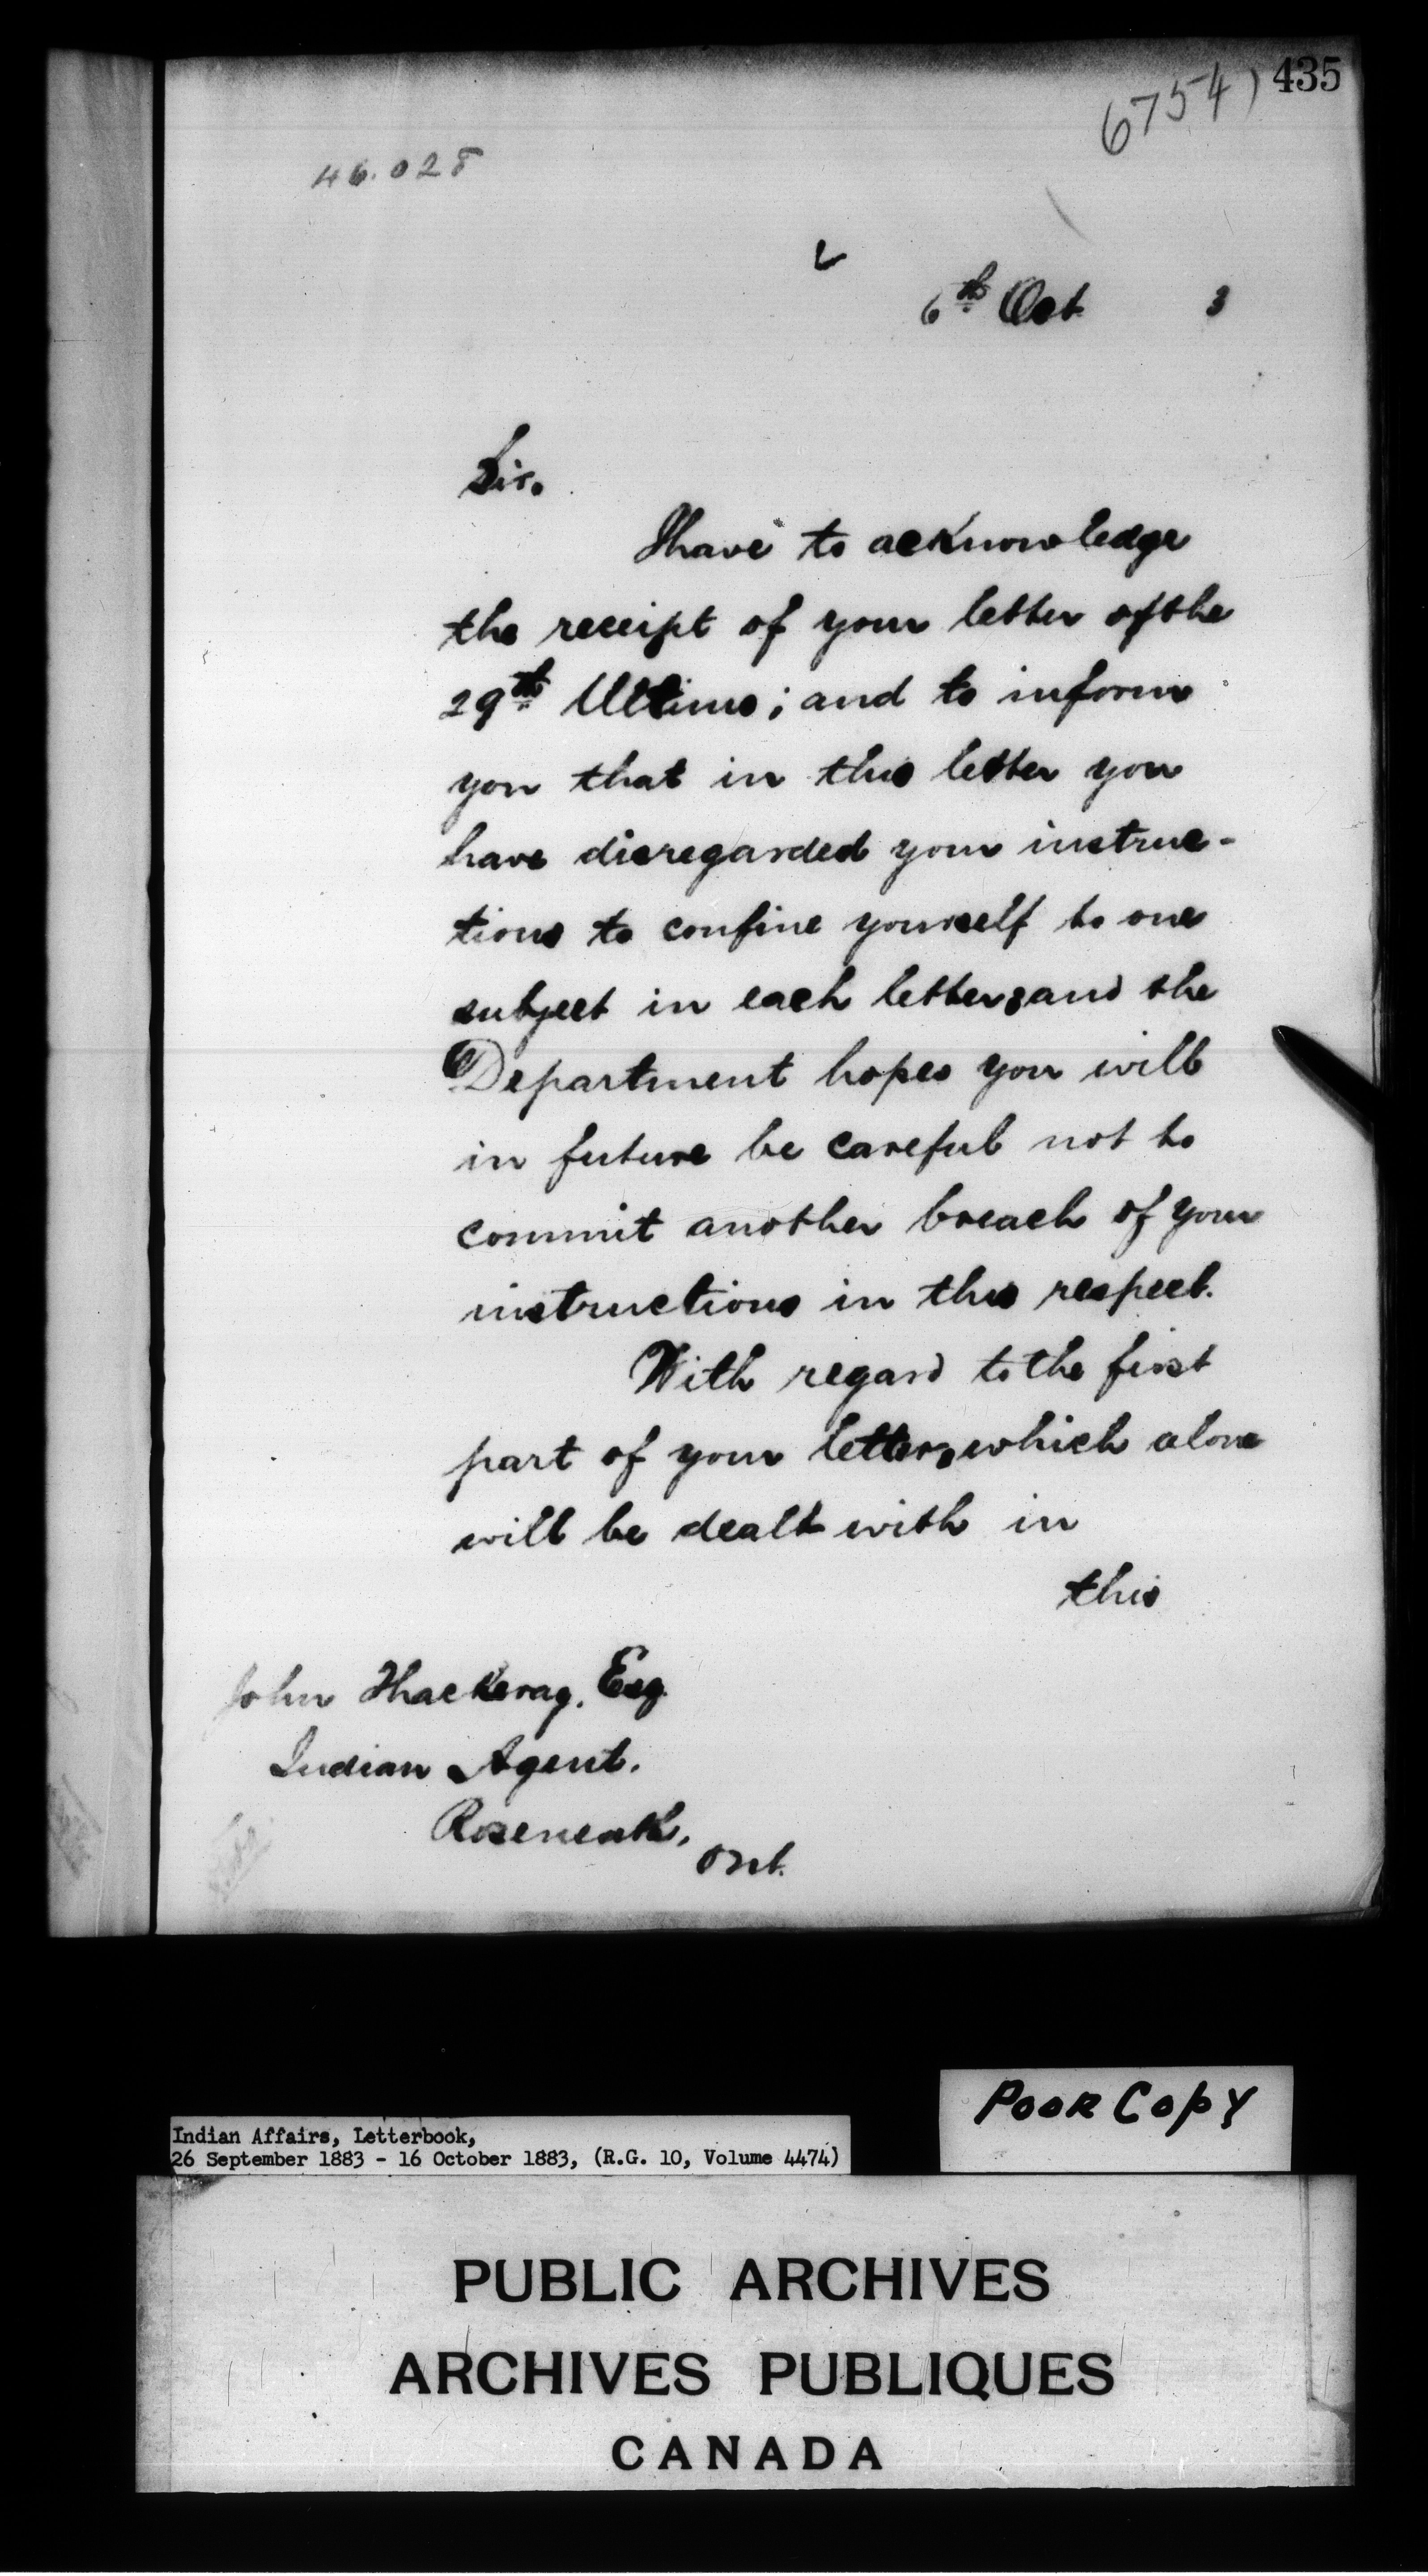 435
6754)
46.028
6th Oct. 3
Sir.
I have to acknowledge
the receipt of your letter of the
29th Ultimo; and to inform
you that in this letter you
have disregarded your instruc-
tions to confine yourself to one
subject in each letter; and the
Department hopes you will
in future be careful not to
commit another breach of your
instructions in this respect.
With regard to the first
part of your letter, which alone
will be dealt with in
this
John Thackeray, Esq.
Indian Agent.
Roseneath,
Ont.
Poor Copy
Indian Affairs, Letterbook,
26 September 1883 - 16 October 1883, (R.G. 10, Volume 4474)
PUBLIC ARCHIVES
ARCHIVES PUBLIQUES
CANADA